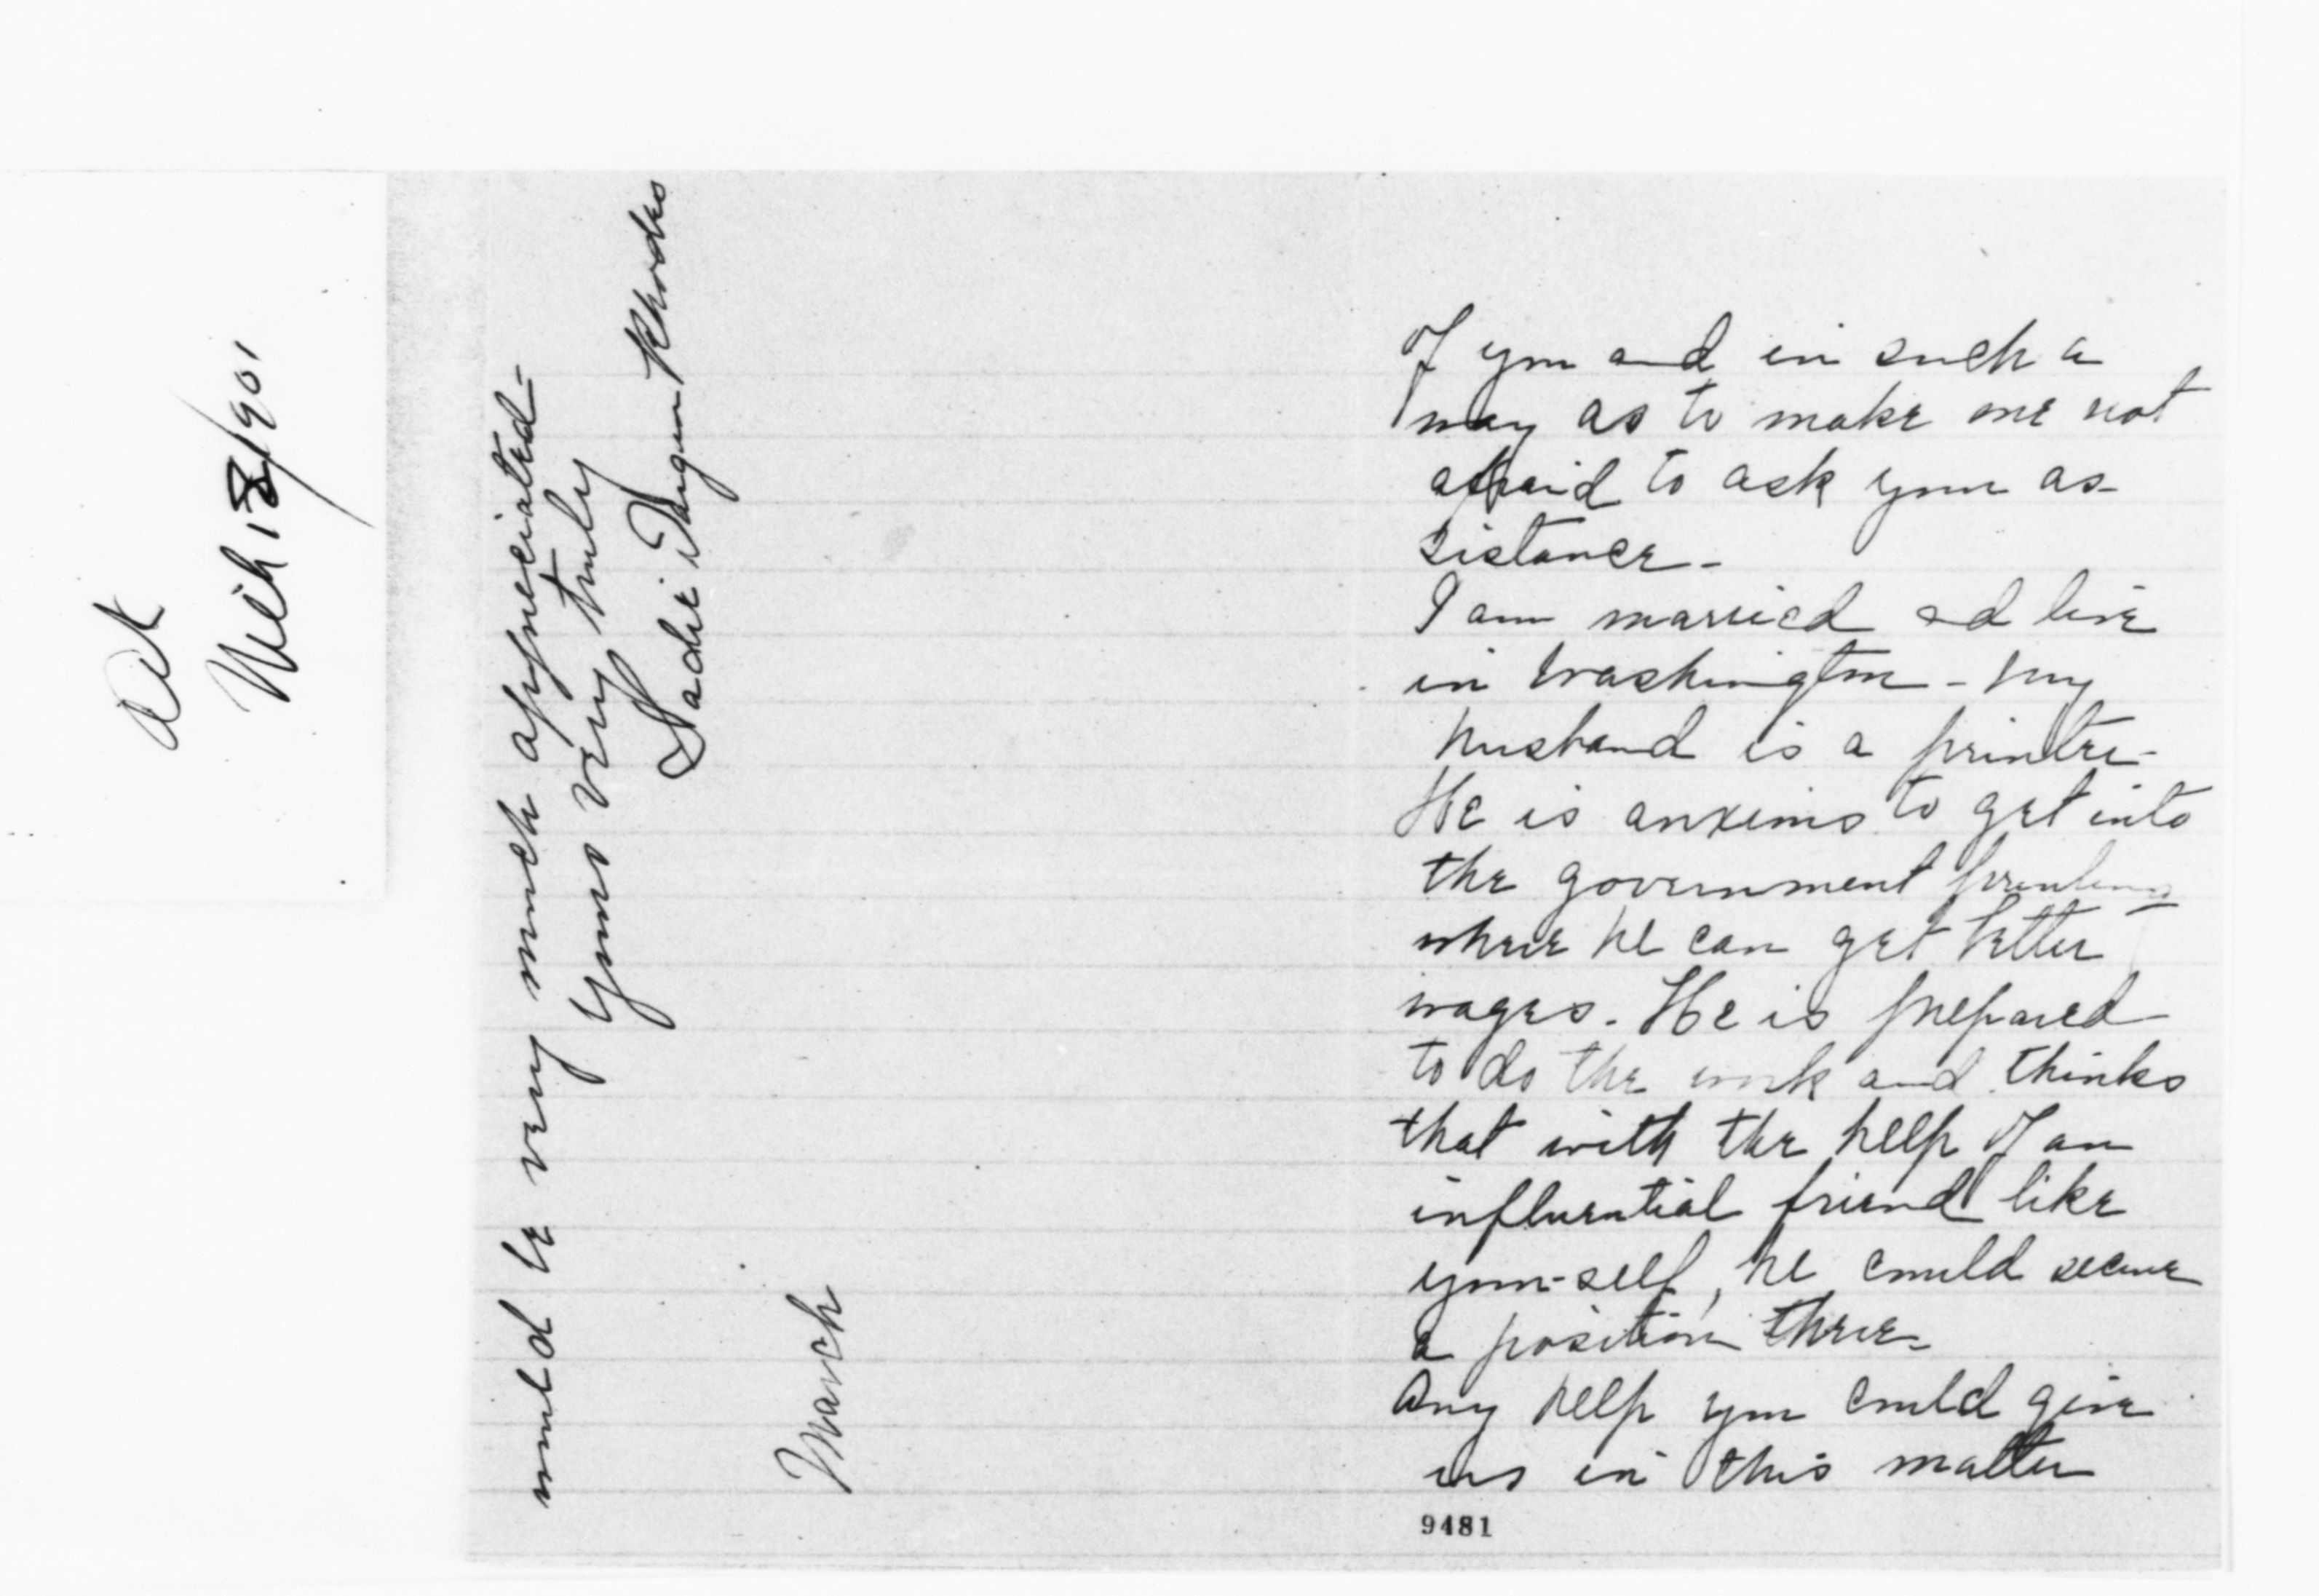 of you and in such a
way as to make me not
afraid to ask your as-
sistance-
I am married and live
in Washington - my
husband is a printer-
He is anxious to get into
the government printing
where he can get better
wages. He is prepared
to do the work and thinks
that with the help of an
influential friend like
your-self, he could secure
a position there-
Any help you could give
us in this matter
9481
would be very much appreciated-
Yours very truly
Sadie Rhodes
March
Ack
Mch 18/1901